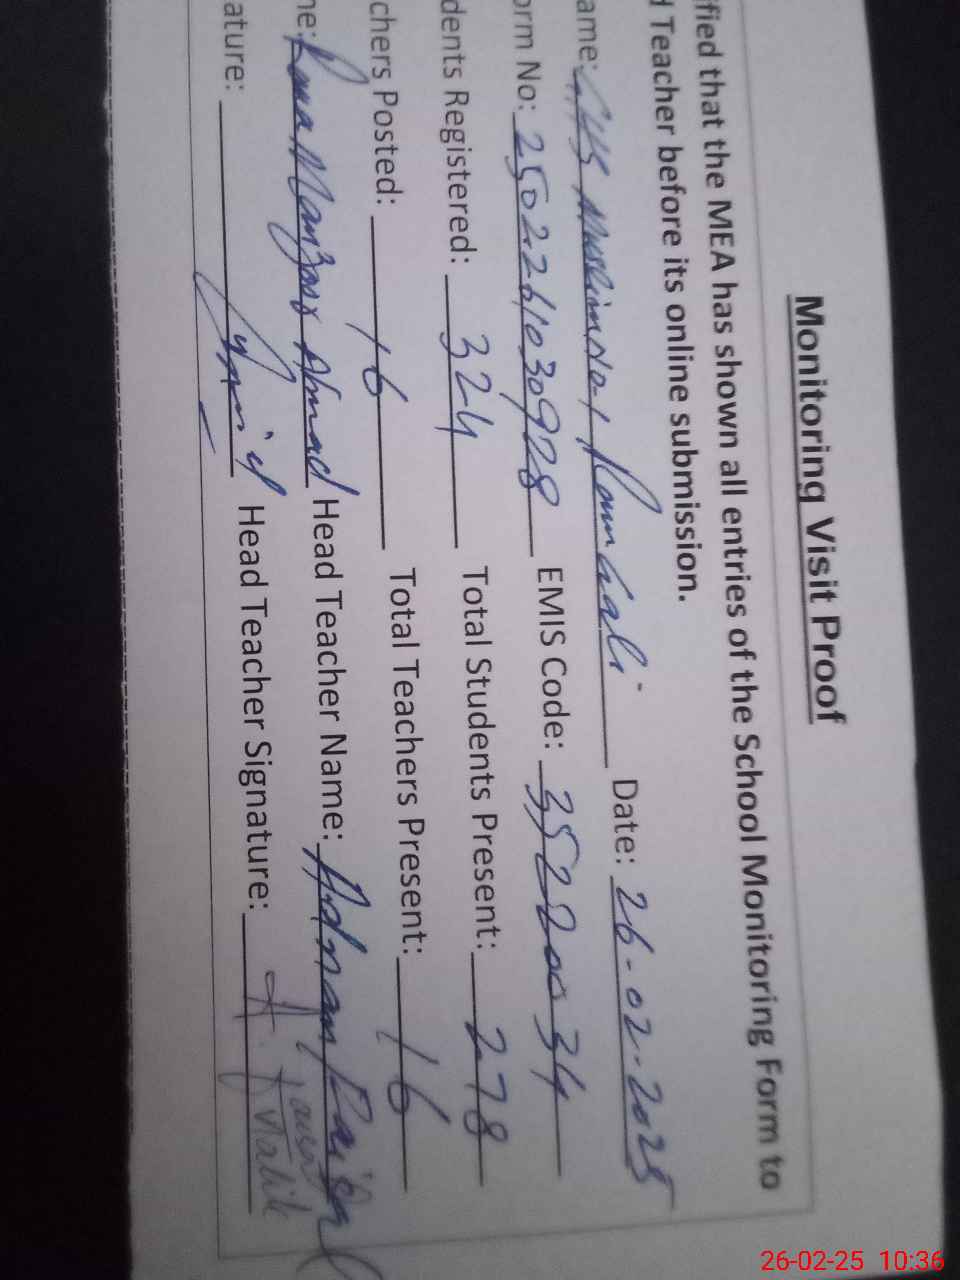 Monitoring Visit Proof
ified that the MEA has shown all entries of the School Monitoring Form to
d Teacher before its online submission.
ame: GHS Muslim No. 1 Date: 26-02-2025
orm No: 2502261030928 EMIS Code: 35220034
dents Registered: 324 Total Students Present: 278
chers Posted: 16 Total Teachers Present: 16
ne: Rana Manzoor Ahmad Head Teacher Name: Adnan
ature: Head Teacher Signature:
26-02-25 10:36